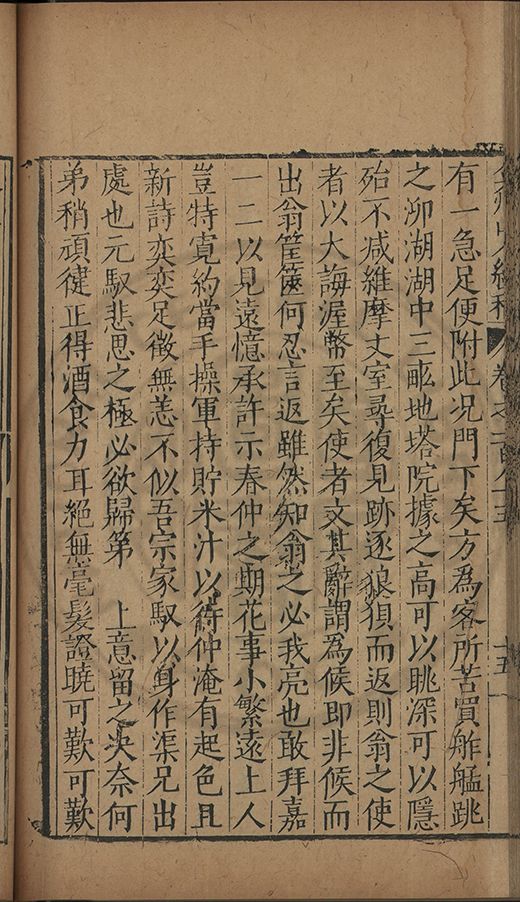 有一急足便附此况門下矣方為客所苦買舴艋跳
之泖湖湖中三畝地塔院據之高可以眺深可以隱
殆不减維摩丈室尋復見跡逐狼狽而返則翁之使
者以大誨渥幣至矣使者文其辭謂為候即非候而
出翁筐篋何忍言返雖然知翁之必我亮也敢拜嘉
一二以見遠憶承許示春仲之期花事小繁遠上人
豈特寛約當手操軍持貯米汁以待仲淹有起色且
新詩奕奕足徵無恙不似吾宗家馭以身作渠兄出
處也元馭悲思之極必欲歸第 上意留之决奈何
弟稍頑徤正得酒食力耳絕無毫髮證曉可歎可歎
卷之一百八十五
十五